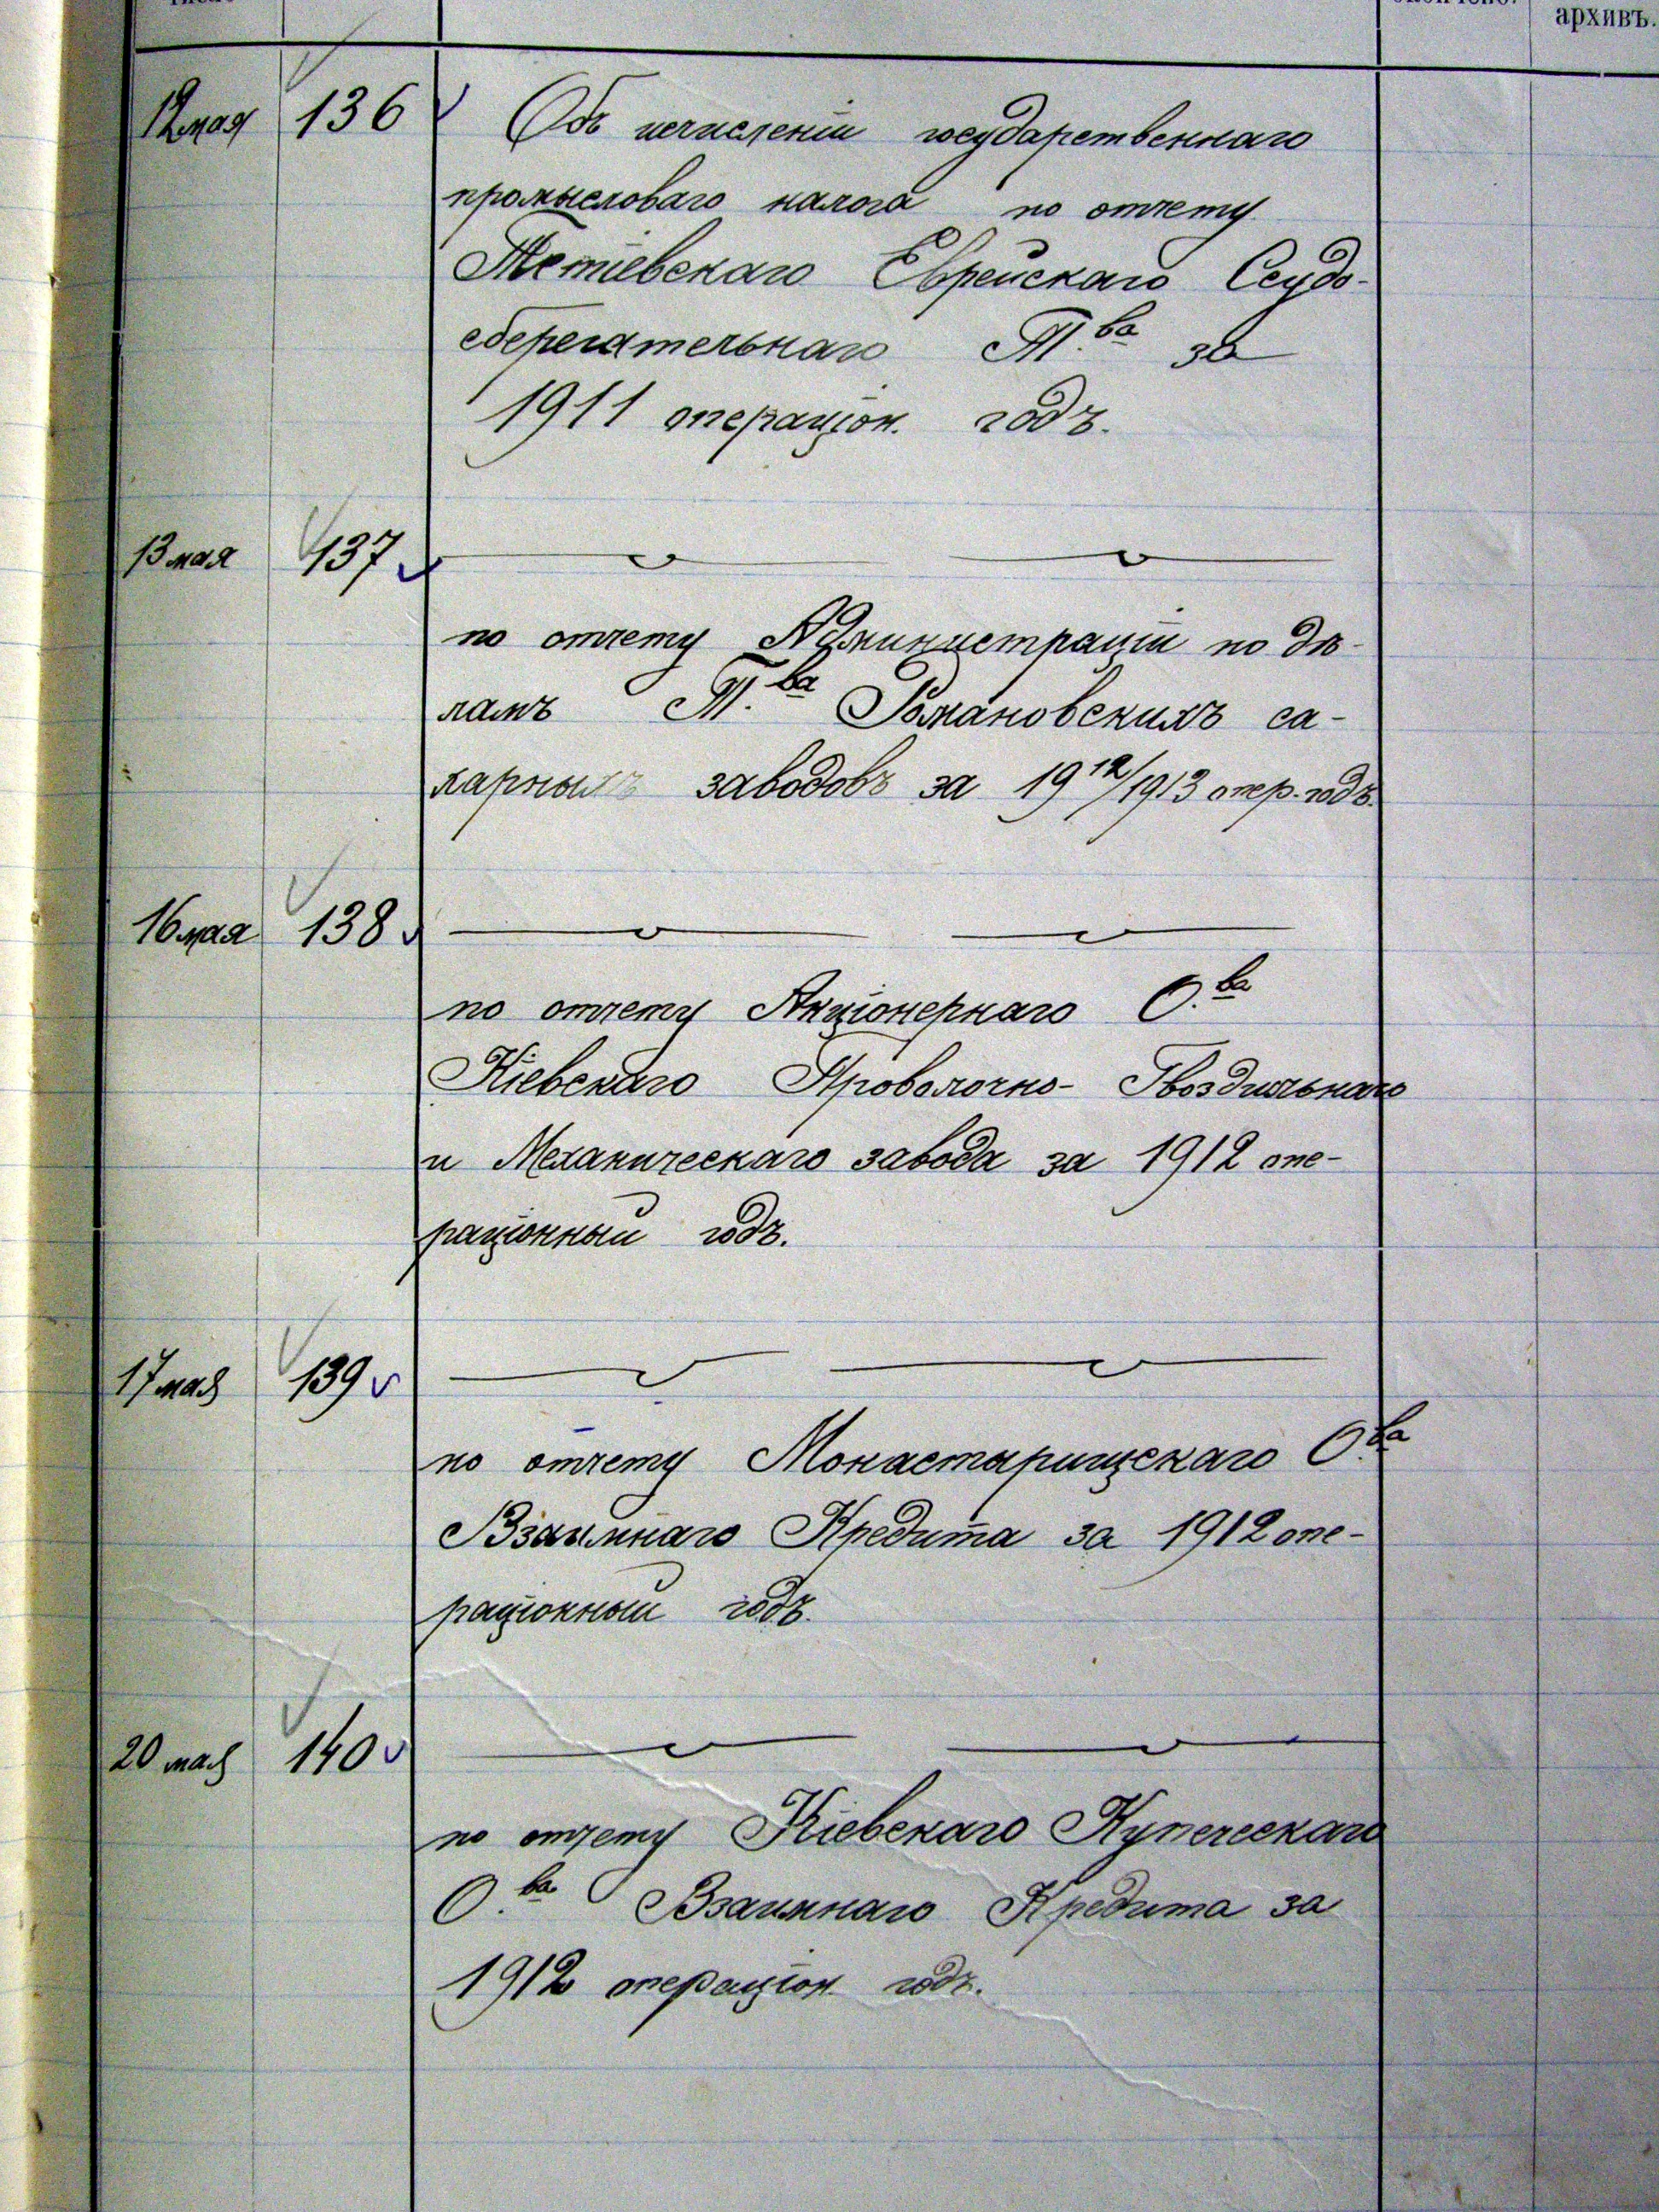 архивъ.
12 мая 136 Объ исчисленіи государственнаго
промысловаго налога по отчету
Тетіевскаго Еврейскаго Ссудо-
сберегательнаго Т.ва за
1911 операціон. годъ.
13 мая 137
по отчету Администраціи по дѣ-
ламъ Т.ва Романовскихъ са-
харныхъ заводовъ за 1912/1913 опер. годъ.
16 мая 138
по отчету Акціонернаго О.ва
Кіевскаго Проволочно- Гвоздильнаго
и Механическаго завода за 1912 опе-
раціонный годъ.
17 мая 139
по отчету Монастырищскаго О.ва
Взаимнаго Кредита за 1912 опе-
раціонный годъ.
20 мая 140
по отчету Кіевскаго Купеческаго
О.ва Взаимнаго Кредита за
1912 операціон. годъ.